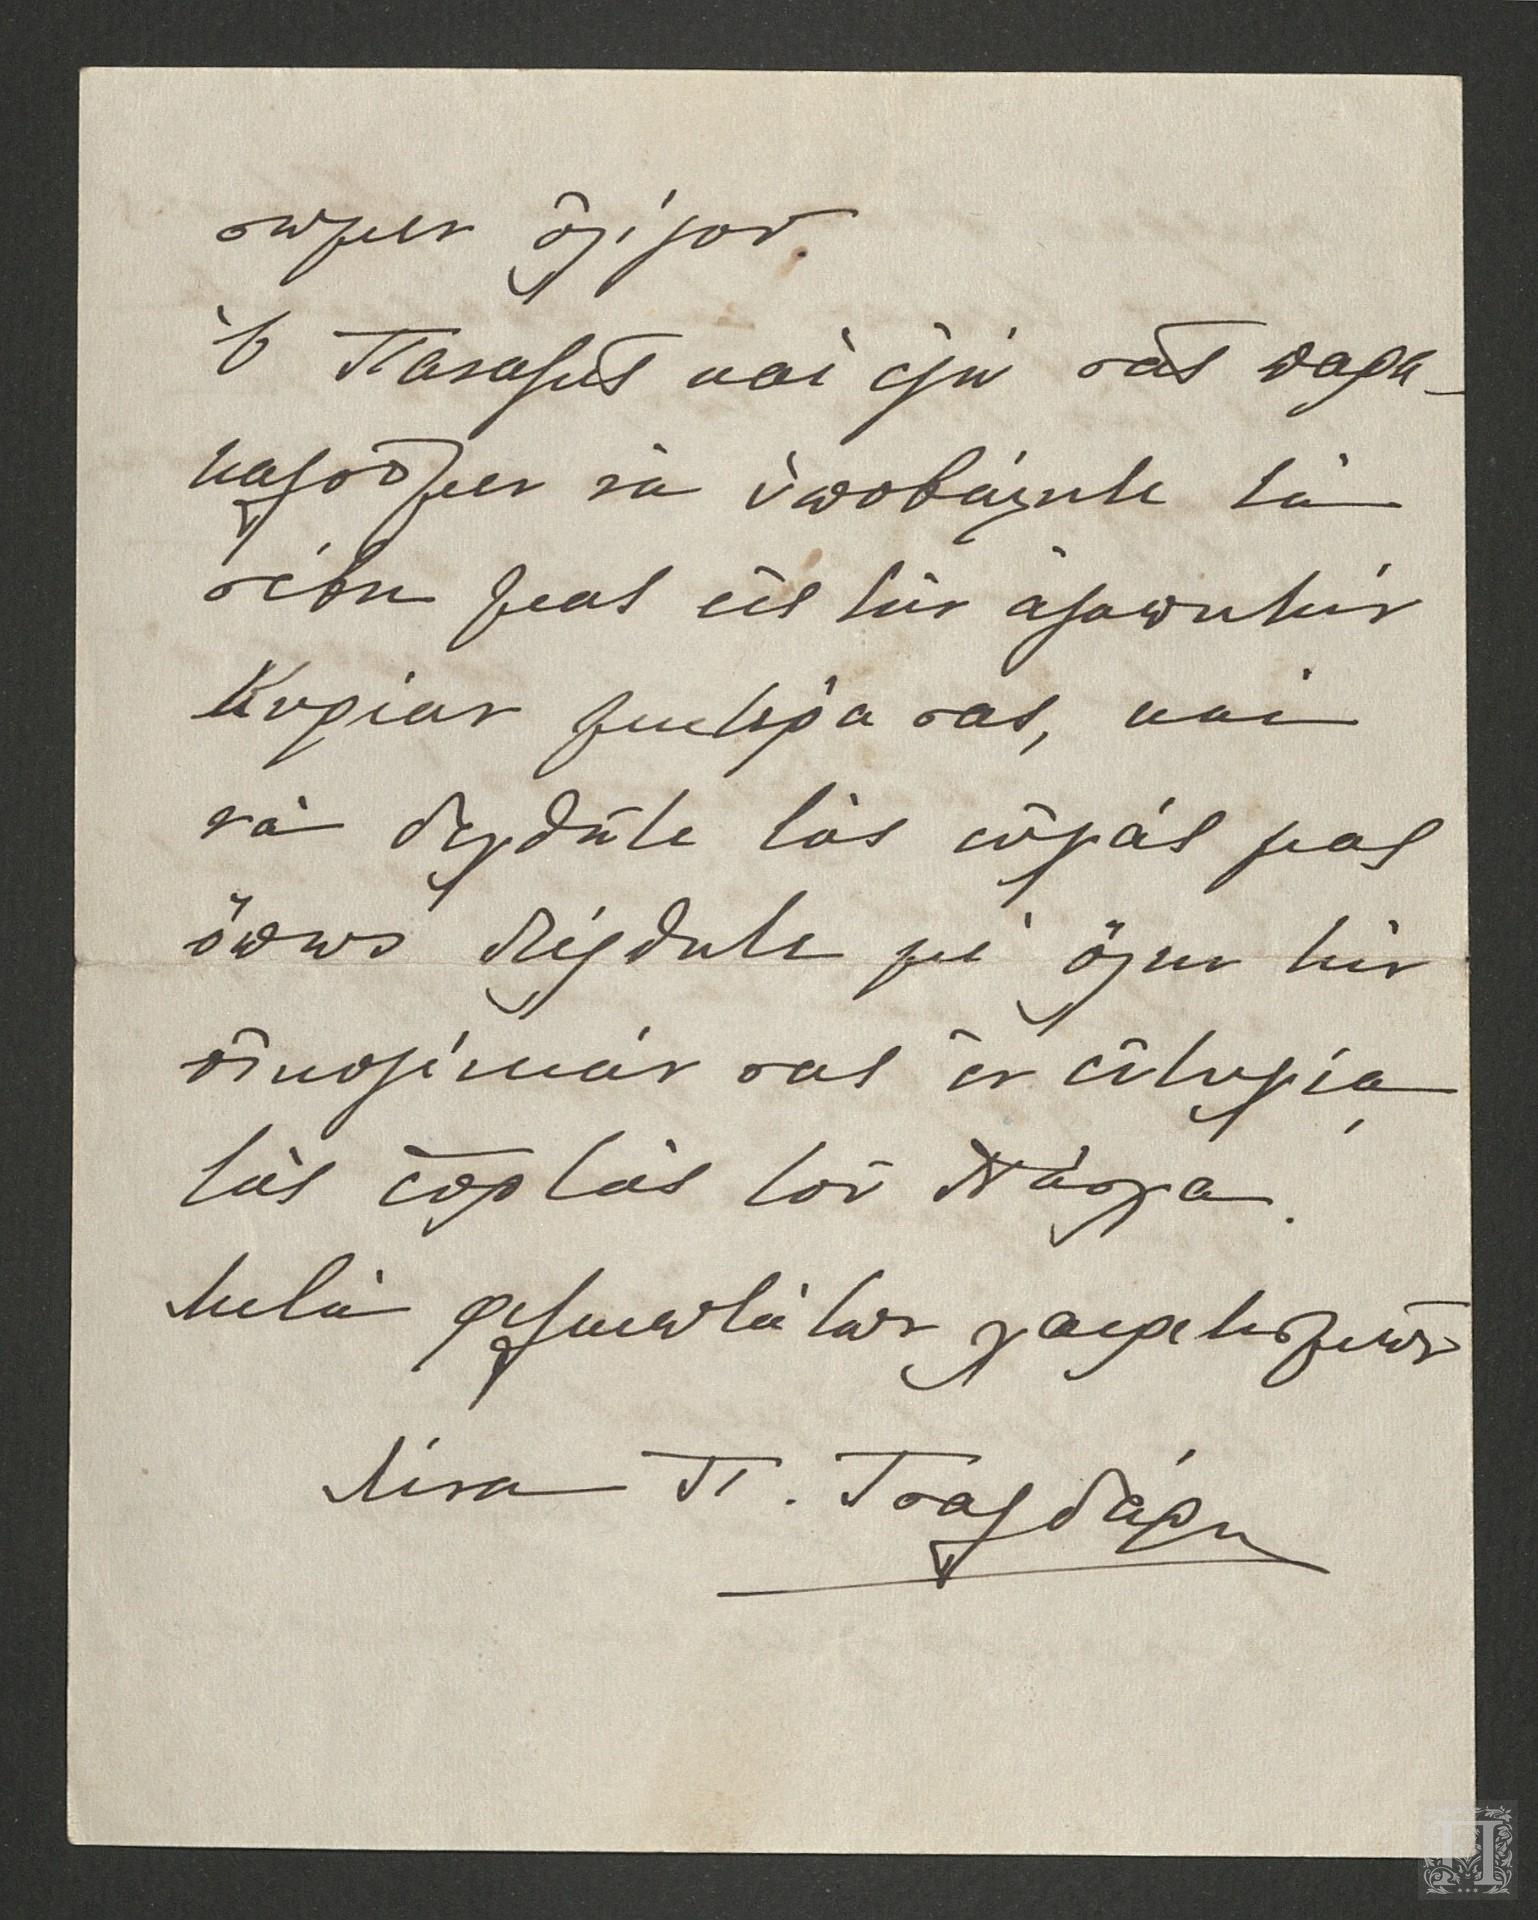 σωμεν ὀλίγον.
Ὁ Παναγῆς καὶ ἐγὼ σᾶς παρα-
καλοῦμεν νὰ ὑποβάλητε τὰ
σέβη μας εἰς τὴν ἀγαπητὴν
Κυρίαν μητέρα σας, καὶ
νὰ δεχθῆτε τὰς εὐχάς μας
ὅπως διέλθητε μὲ ὅλην τὴν
οἰκογένειάν σας ἐν εὐτυχίᾳ
τὰς ἑορτὰς τοῦ Πάσχα.
Μετὰ φιλικωτάτων χαιρετισμῶν
Λίνα Π. Τσαλδάρη